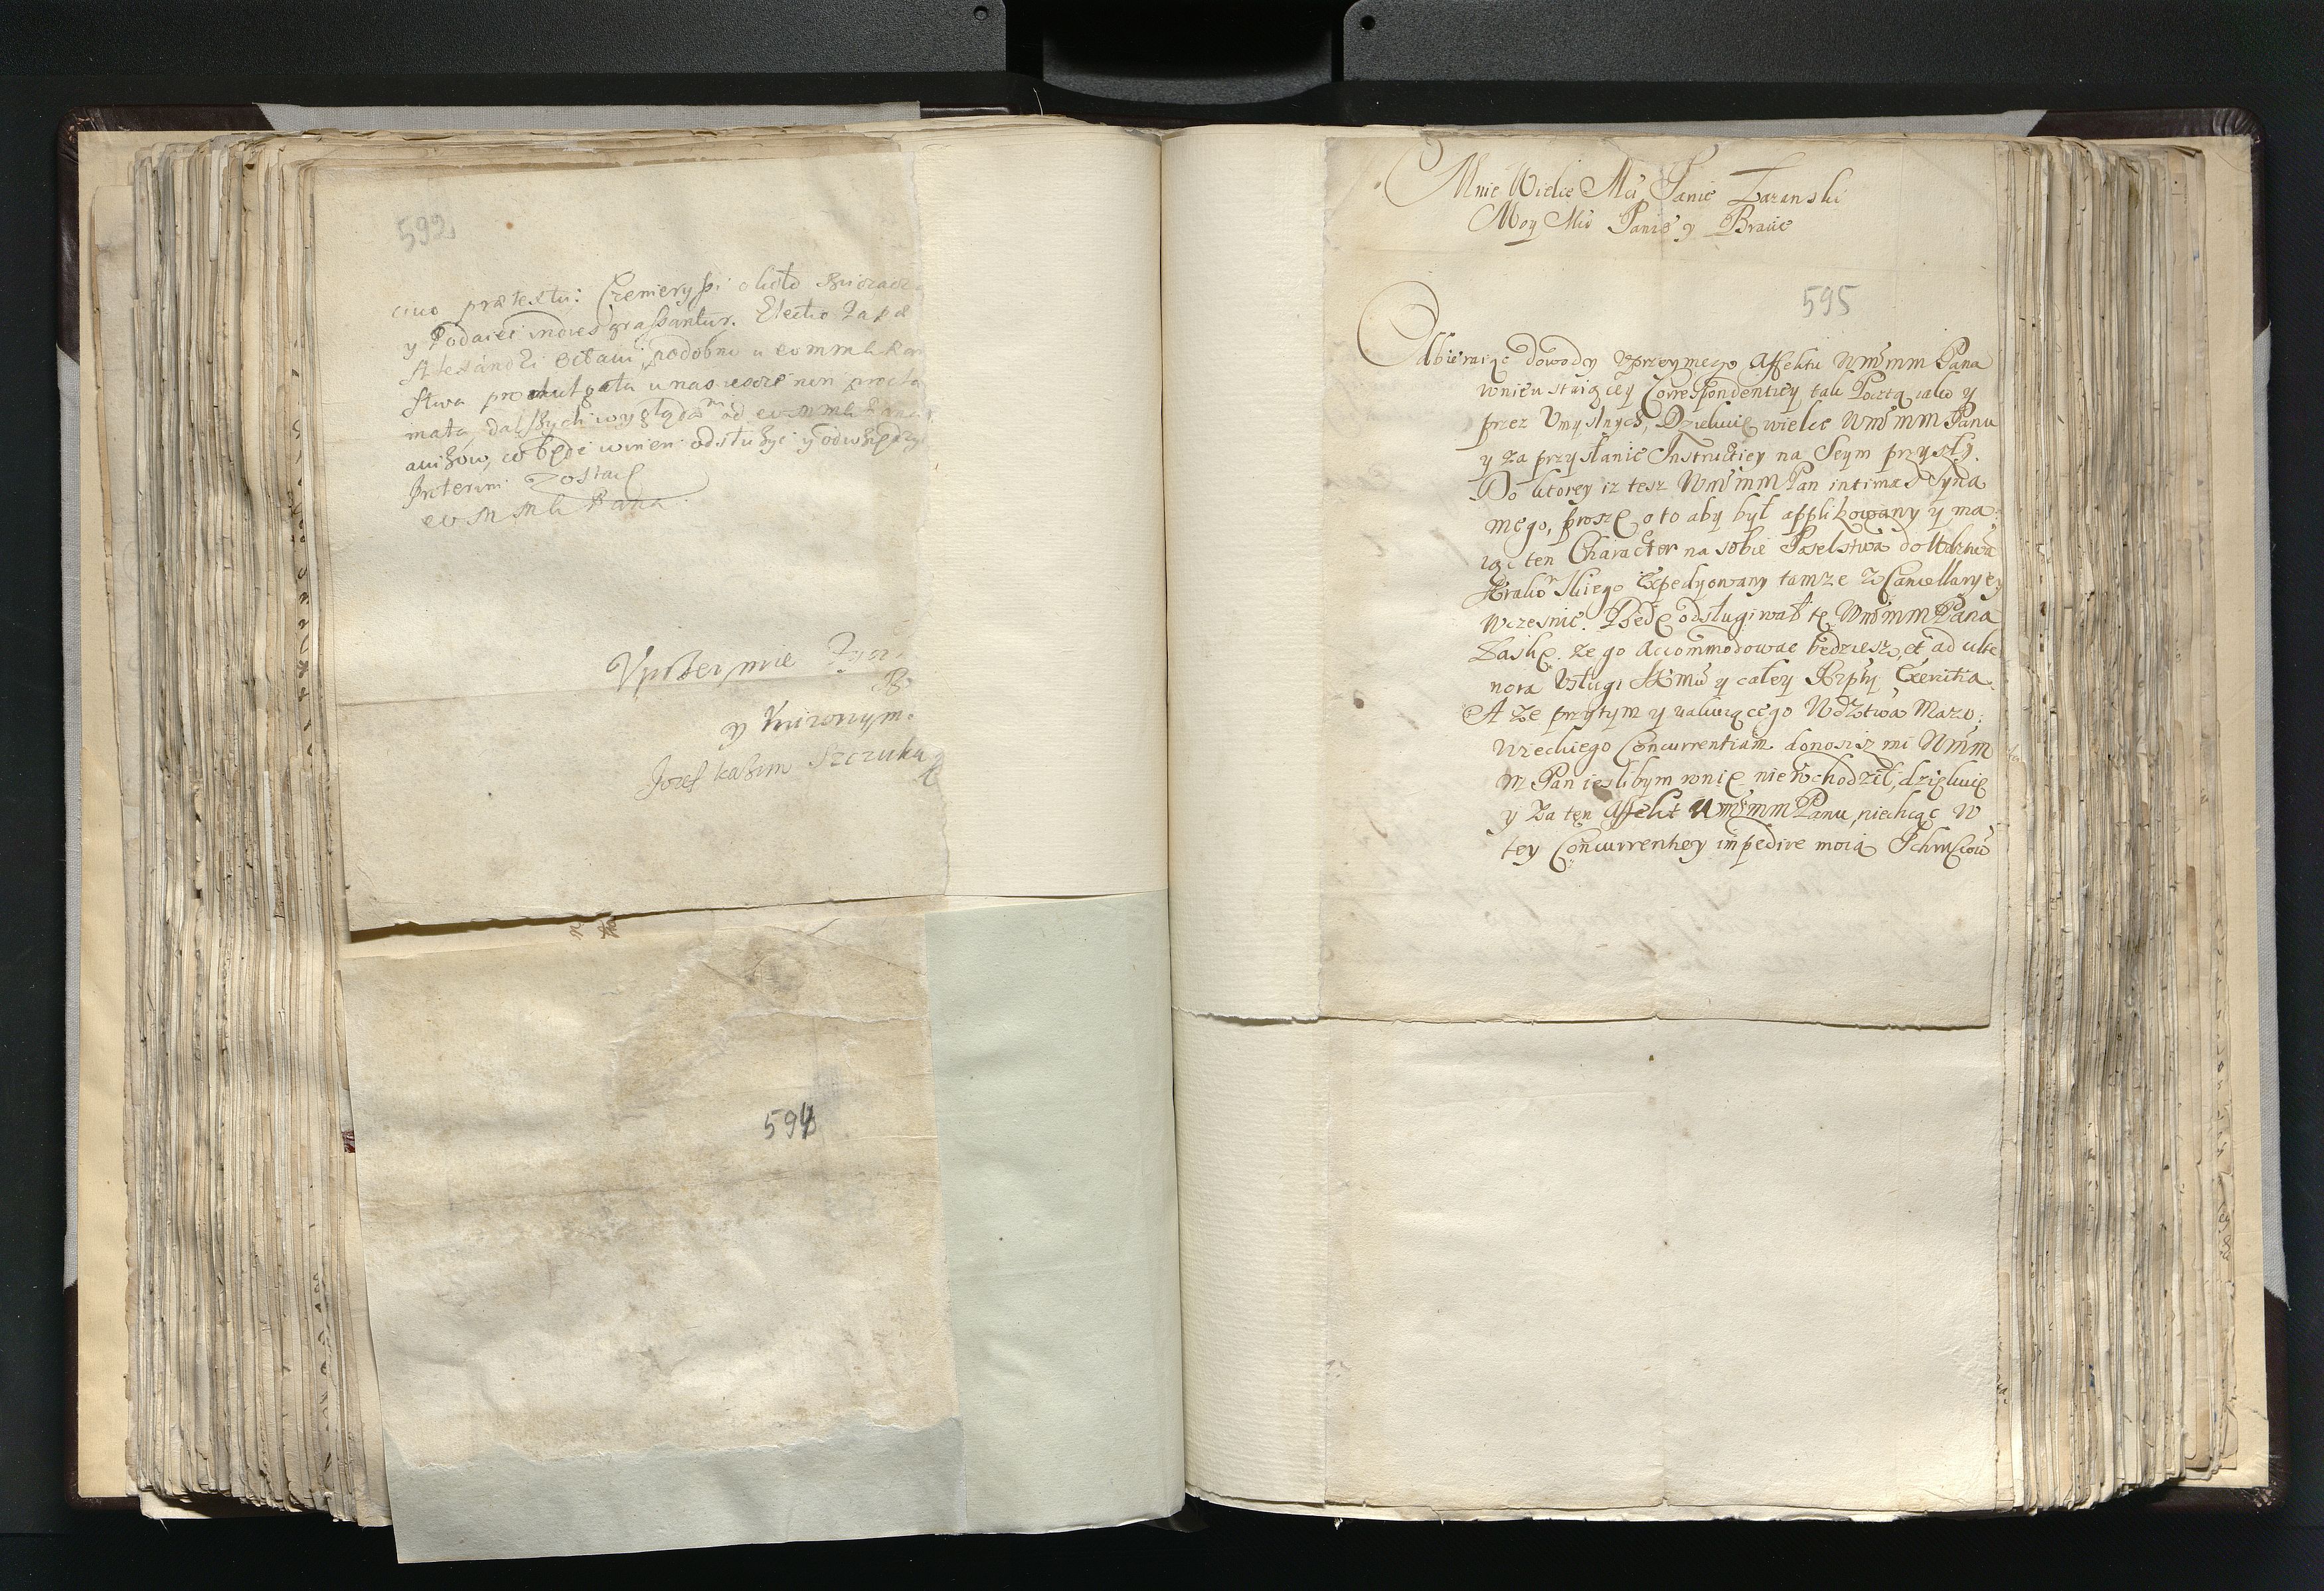 592
ciuo prætextu: Czemeryssi około
y Podaiec indies grassantur. Electio Papæ
Alexandri Octavi, podobno u
stwa promulgata, u nas ieszcze non procla
mata, dalszych wyglądam od
awizow, co będę winien odsłużyć y odwdzięczyć
Interim Zostaię
Pana
Vprzeymie
y
Jozef Kazim Szczuka
594
Mnie Wielce Mci Panie Zaranski
Moy Mci Panie y Bracie
595
Odbieraiąc dowody Vprzeymego Affektu WMmmPana
w nieustaiącey Correspondentiey tak Pocztą iako y
przez Vmyslnych, Dziękuię wielce WMmmPanu
y za przysłanie Instructiey na Seym przyszły.
Do ktorey iz tesz WMmmPan intimas Syna
mego, proszę o to aby był applikowany y ma
iąc ten Character na sobie Poselstwa do
Krakowskiego Expedyowany tamze z Cancellaryey
Wczesnie. Będę odsługiwał tę WMmmPana
Łaskę. Ze go Accommodowac będziesz, et ad ulte
riora Vsługi JKMci y całey Rzpltey Exercitia.
A ze przytym y Wdztwa Mazo
wieckiego Concurrentiam donosisz mi WMm
m Pan iesłibym w nię nie wchodził, dziękuię
y za ten Affekt WMmmPanu, niechcąc W
tey Concurrentiey impedire moią